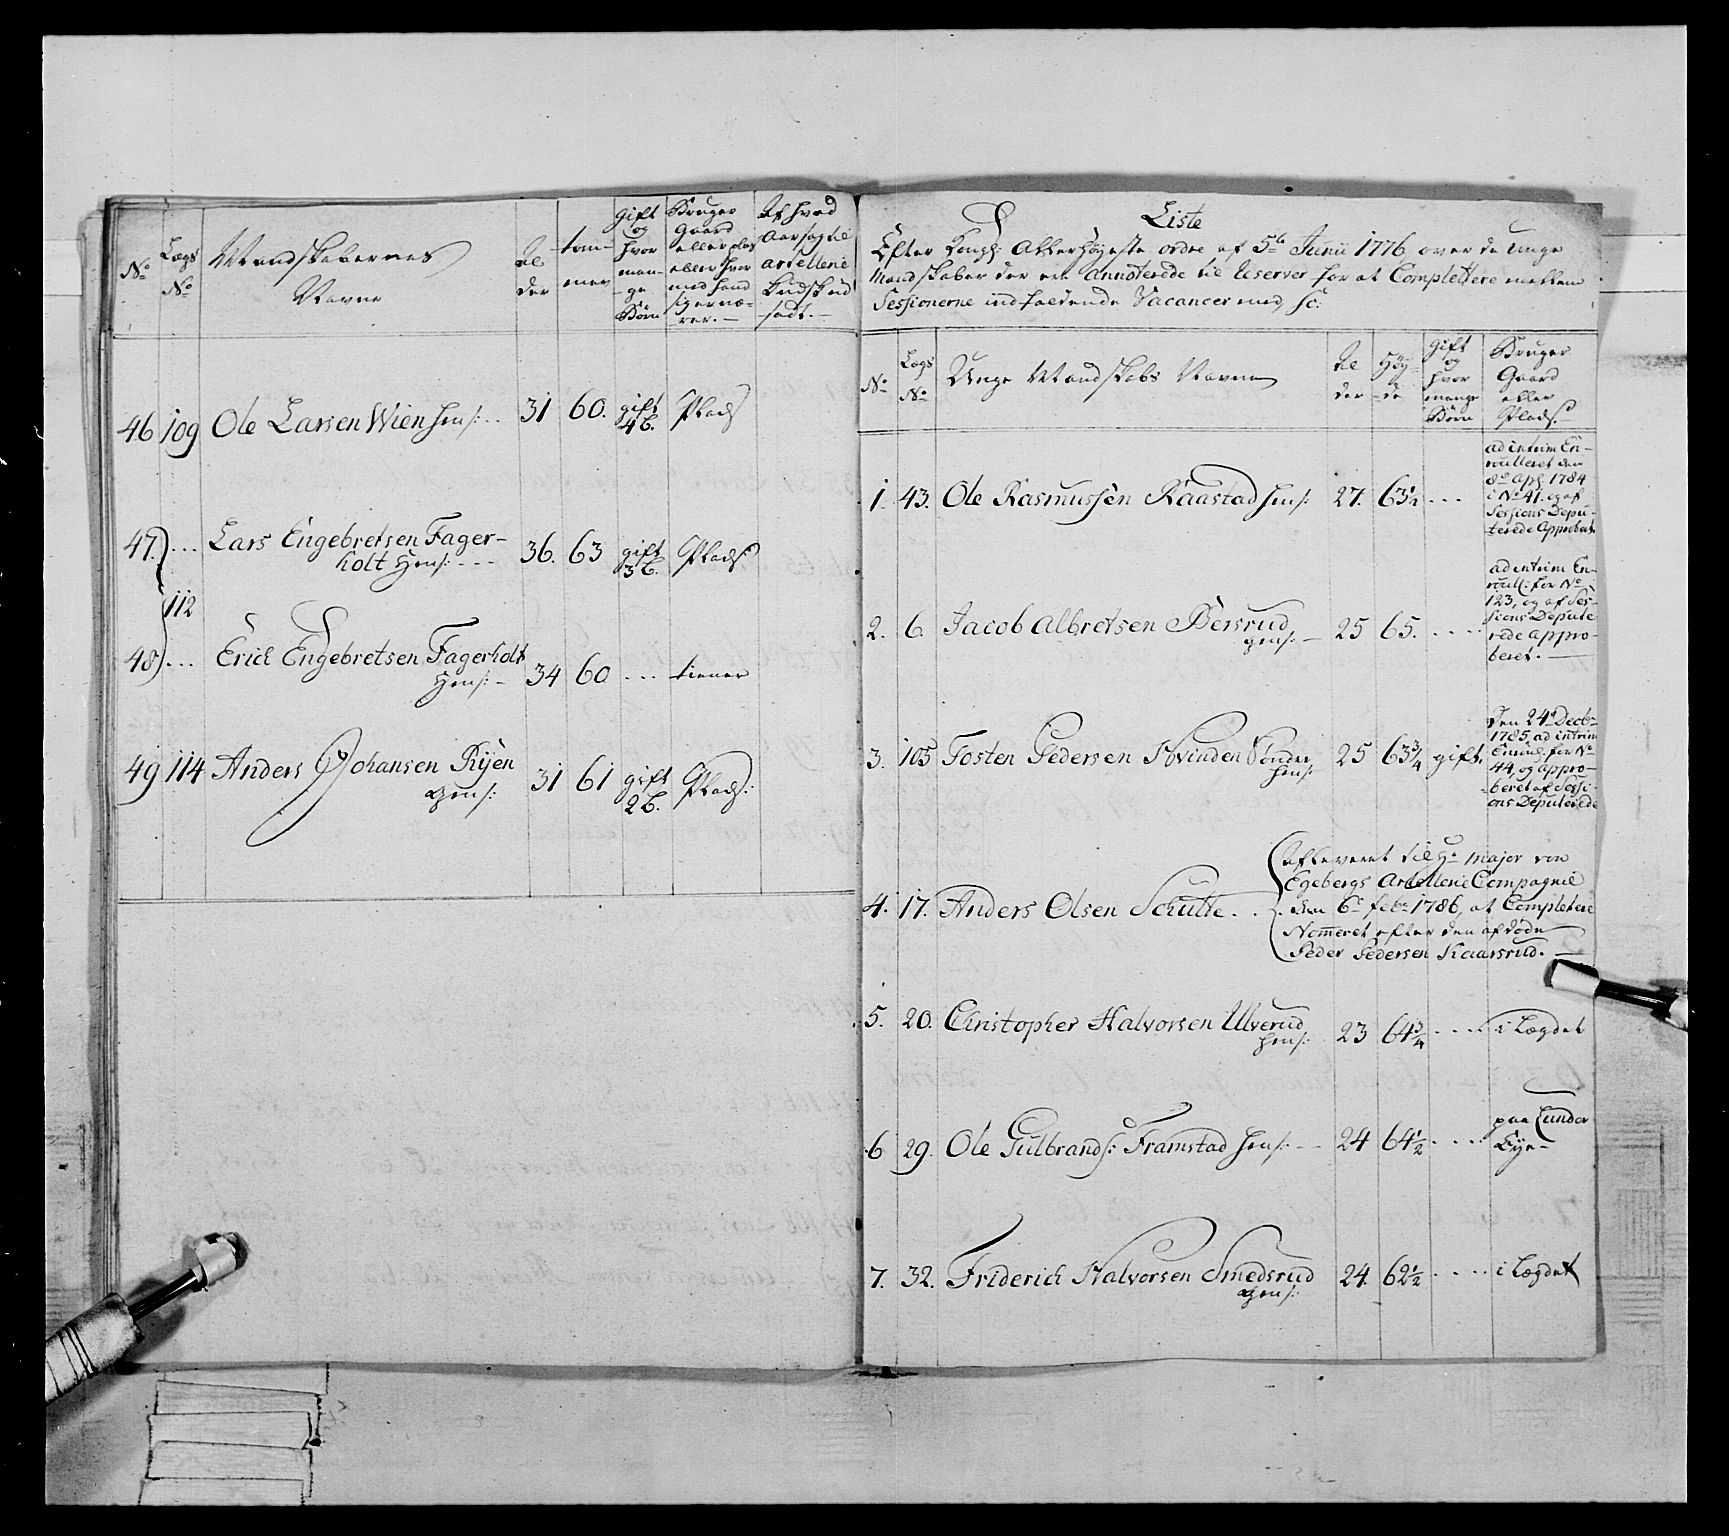 No
Lægs
No
Mandskabernes
Navne
Al
der
tom-
mer
gift
og
hvor
man-
ge
Børn
Bruger
Gaard
eller plas
eller hvor
med hand
sig ernæ-
rer.
Af hvad
Aarsag til
artellerie
Kudsk ud
sadt.
46 109 Ole Larsen Wien Hens: 31 60. gift Plads
4 b.
47. ... Lars Engebretsen Fager- 36. 63 gift Plads
holt Hens: 3 b.
112
48 ... Erich Engebretsen Fagerholt 34 60 ... tiener
Hens:
49 114 Anders Johansen Rÿen 31 61 gift Plads:
gens: 2 b.
Liste
Efter Kongl: Allerhøyeste ordre af 5te Junii 1776, over de Unge
Mandskaber der ere Annoterede til reserver for at Complettere mellem
Sessionerne indfaldende Vacancer med, sc:
No
Lægs
No
Unge Mandskabs Navne
Al
der
Høy-
de
gift
og
hvor
mange
Børn
Bruger
Gaard
eller
Plads.
1. 43. Ole Rasmussen Raastad Hens: 27. 63½ ...
ad intrim En-
roulleret den
8de Apl 1784
i No 41. og af
Sessions Depu-
terede Approberet
2. 6. Jacob Albretsen Bersrud 25 65. ....
gens:
ad intrim En-
roull: for No
123, og af Ses-
sions Depute
rede appro-
beret.
3. 105 Tosten Pedersen Hovinden Sønder 25 63¾ gift.
Hens:
Den 24de Decbr
1785, ad intrim
Enroul: for No
44, og appro-
beret af Sessi-
ons Deputerede
4. 17. Anders Olsen Schulte. ..
Afleveret til Hr major von
Egebergs Artellerie Compagnie
den 6te febr 1786, at Completere
Nommeret efter den afdøde
Peder Pedersen Kaarsrud.
5. 20. Christopher Halvorsen Ulverud 23 64¾ .... i Lægdet
Hens:
6 29. Ole Gulbrands: Framstad Hens: 24 64½ .... paa Lunder
Eye
7. 32. Friderich Halvorsen Smedsrud 24. 62½ .... i Lægdet
gens: